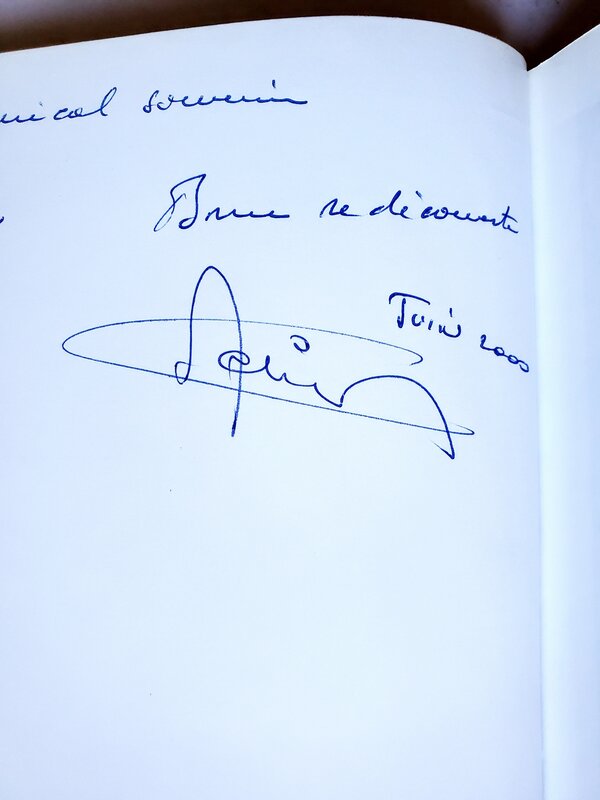 amical souvenir
Bonne redécouverte
Juin 2000